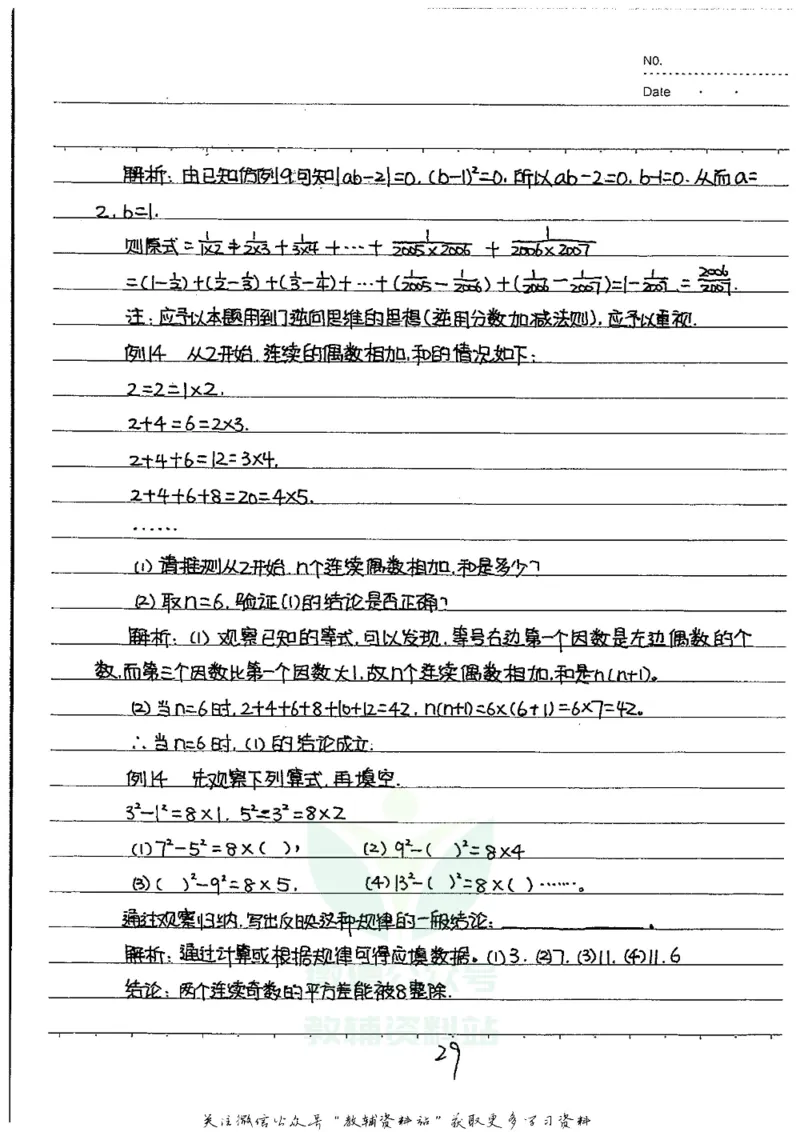 NO.
Date
解析:由已知何例9可知|ab-2|=0,(b-1)²=0,所以ab-2=0,b-1=0.从而a=
2,b=1.
则原式=1/1×2+1/2×3+1/3×4+…+1/2005×2006+1/2006×2007
=(1-1/2)+(1/2-1/3)+(1/3-1/4)+…+(1/2005-1/2006)+(1/2006-1/2007)=1-1/2007=2006/2007.
注:应予以本题用到了逆向思维的思想(逆用分数加减法则),应予以重视.
例14 从2开始,连续的偶数相加,和的情况如下:
2=2=1×2,
2+4=6=2×3.
2+4+6=12=3×4,
2+4+6+8=20=4×5.
……
(1)请推测从2开始,n个连续偶数相加,和是多少?
(2)取n=6,验证(1)的结论是否正确?
解析:(1)观察已知的等式,可以发现,等号右边第一个因数是左边偶数的个
数,而第二个因数比第一个因数大1,故n个连续偶数相加,和是n(n+1)。
(2)当n=6时,2+4+6+8+10+12=42,n(n+1)=6×(6+1)=6×7=42。
∴当n=6时,(1)的结论成立.
例14 先观察下列算式,再填空.
3²-1²=8×1,5²-3²=8×2
(1)7²-5²=8×( ), (2)9²-( )²=8×4
(3)( )²-9²=8×5, (4)13²-( )²=8×( )……。
通过观察归纳,写出反映这种规律的一般结论: 。
解析:通过计算或根据规律可得应填数据。(1)3.(2)7.(3)11.(4)11.6
结论:两个连续奇数的平方差能被8整除.
微信公众号
教辅资料站
29
关注微信公众号"教辅资料站"获取更多学习资料